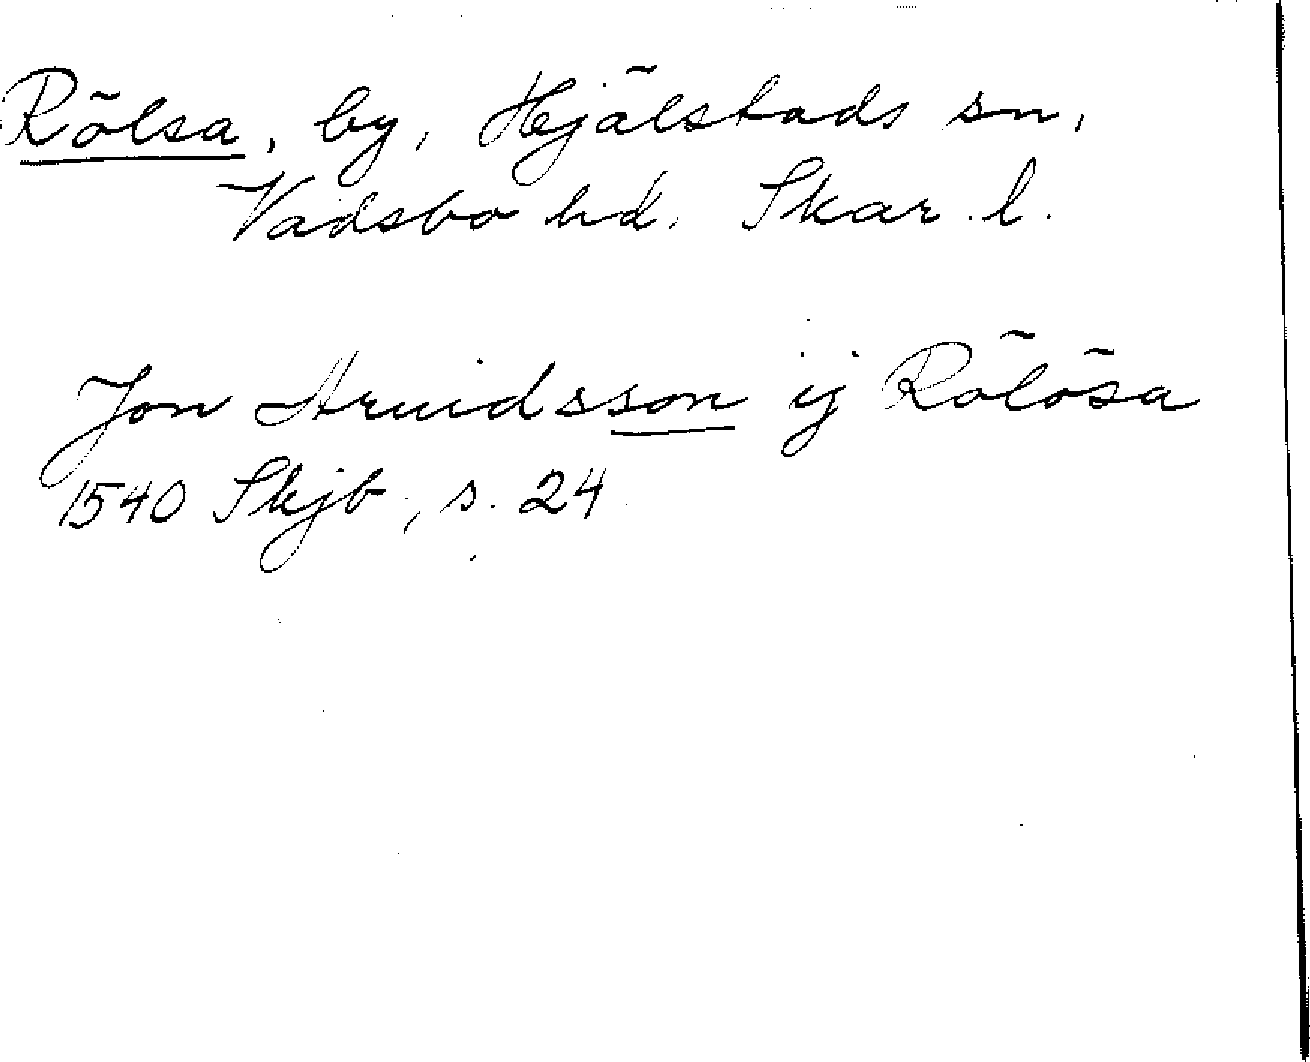 Rölsa, by, Hjälstads sn,
Vadsbo hd. Skar. l.
Jon Aruidsson ij Rölösa
1540 Skjb, s. 24